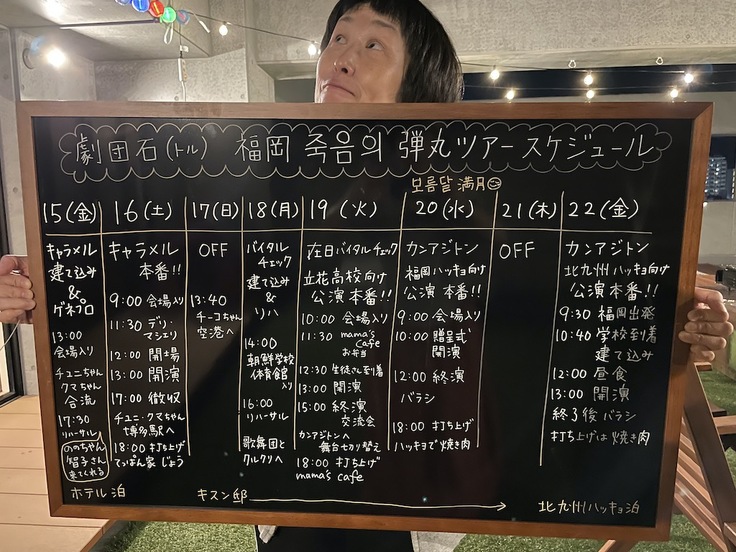 劇団石(トル) 福岡 죽음의 弾丸ツアースケジュール
보름달 満月
15(金)
キャラメル
建て込み
&
ゲネプロ
13:00
会場入り
チュニちゃん
クマちゃん
合流
17:30
リハーサル
ののちゃん
智子さん
来てくれる
16(土)
キャラメル
本番!!
9:00 会場入り
11:30 デリ・
マシェリ
12:00 開場
13:00 開演
17:00 撤収
チュニ・クマちゃん
博多駅へ
18:00 打ち上げ
てっぱん家 じょう
17(日)
OFF
13:40
チーコちゃん
空港へ
18(月)
バイタル
チェック
建て込み
&
リハ
14:00
朝鮮学校
体育館
入り
16:00
リハーサル
歌舞団と
クルクリへ
19(火)
在日バイタルチェック
立花高校向け
公演 本番!!
10:00 会場入り
11:30 mama's
Cafe
お弁当
12:30 生徒さん到着
13:00 開演
15:00 終演
交流会
カンアジトンへ
舞台切り替え
18:00 打ち上げ
mama's cafe
20(水)
カンアジトン
福岡ハッキョ向け
公演 本番!!
9:00 会場入り
10:00 贈呈式
開演
12:00 終演
バラシ
18:00 打ち上げ
ハッキョで焼き肉
21(木)
OFF
22(金)
カンアジトン
北九州ハッキョ向け
公演本番!!
9:30 福岡出発
10:40 学校到着
建て込み
12:00 昼食
13:00 開演
終了後 バラシ
打ち上げは 焼き肉
ホテル泊
キスン邸
北九州ハッキョ泊